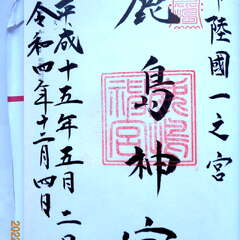 陸國一之宮
鹿島神宮
平成十五年五月二日
令和四年十二月四日